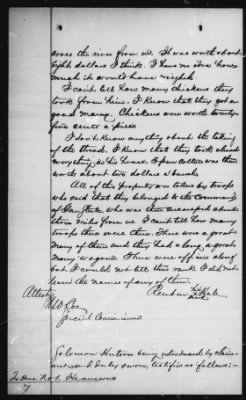 across the river from us. It was worth about
eight dollars I think. I have no idea how
much it would have weighed.
I can't tell how many chickens they
took from him. I know that they got a
good many. Chickens were worth twenty
five cents a piece
I don't know anything about the taking
of the thread. I know that they took about
everything he had.
worth about two dollars a bunch.
All of the property was taken by troops
who said that they belonged to the command
of Gen. who was then encamped about
three miles from us. I can't tell how many
troops they were then. There were a great
many of them and they had a long, a great
many wagons. There were officers along
but I could not tell their rank. I did not
learn the names of any of them.
Attest Reuben his mark
Special Commissioner
Solomon Hutson being introduced by claim-
ant and duly sworn, testifies as follows:-
7